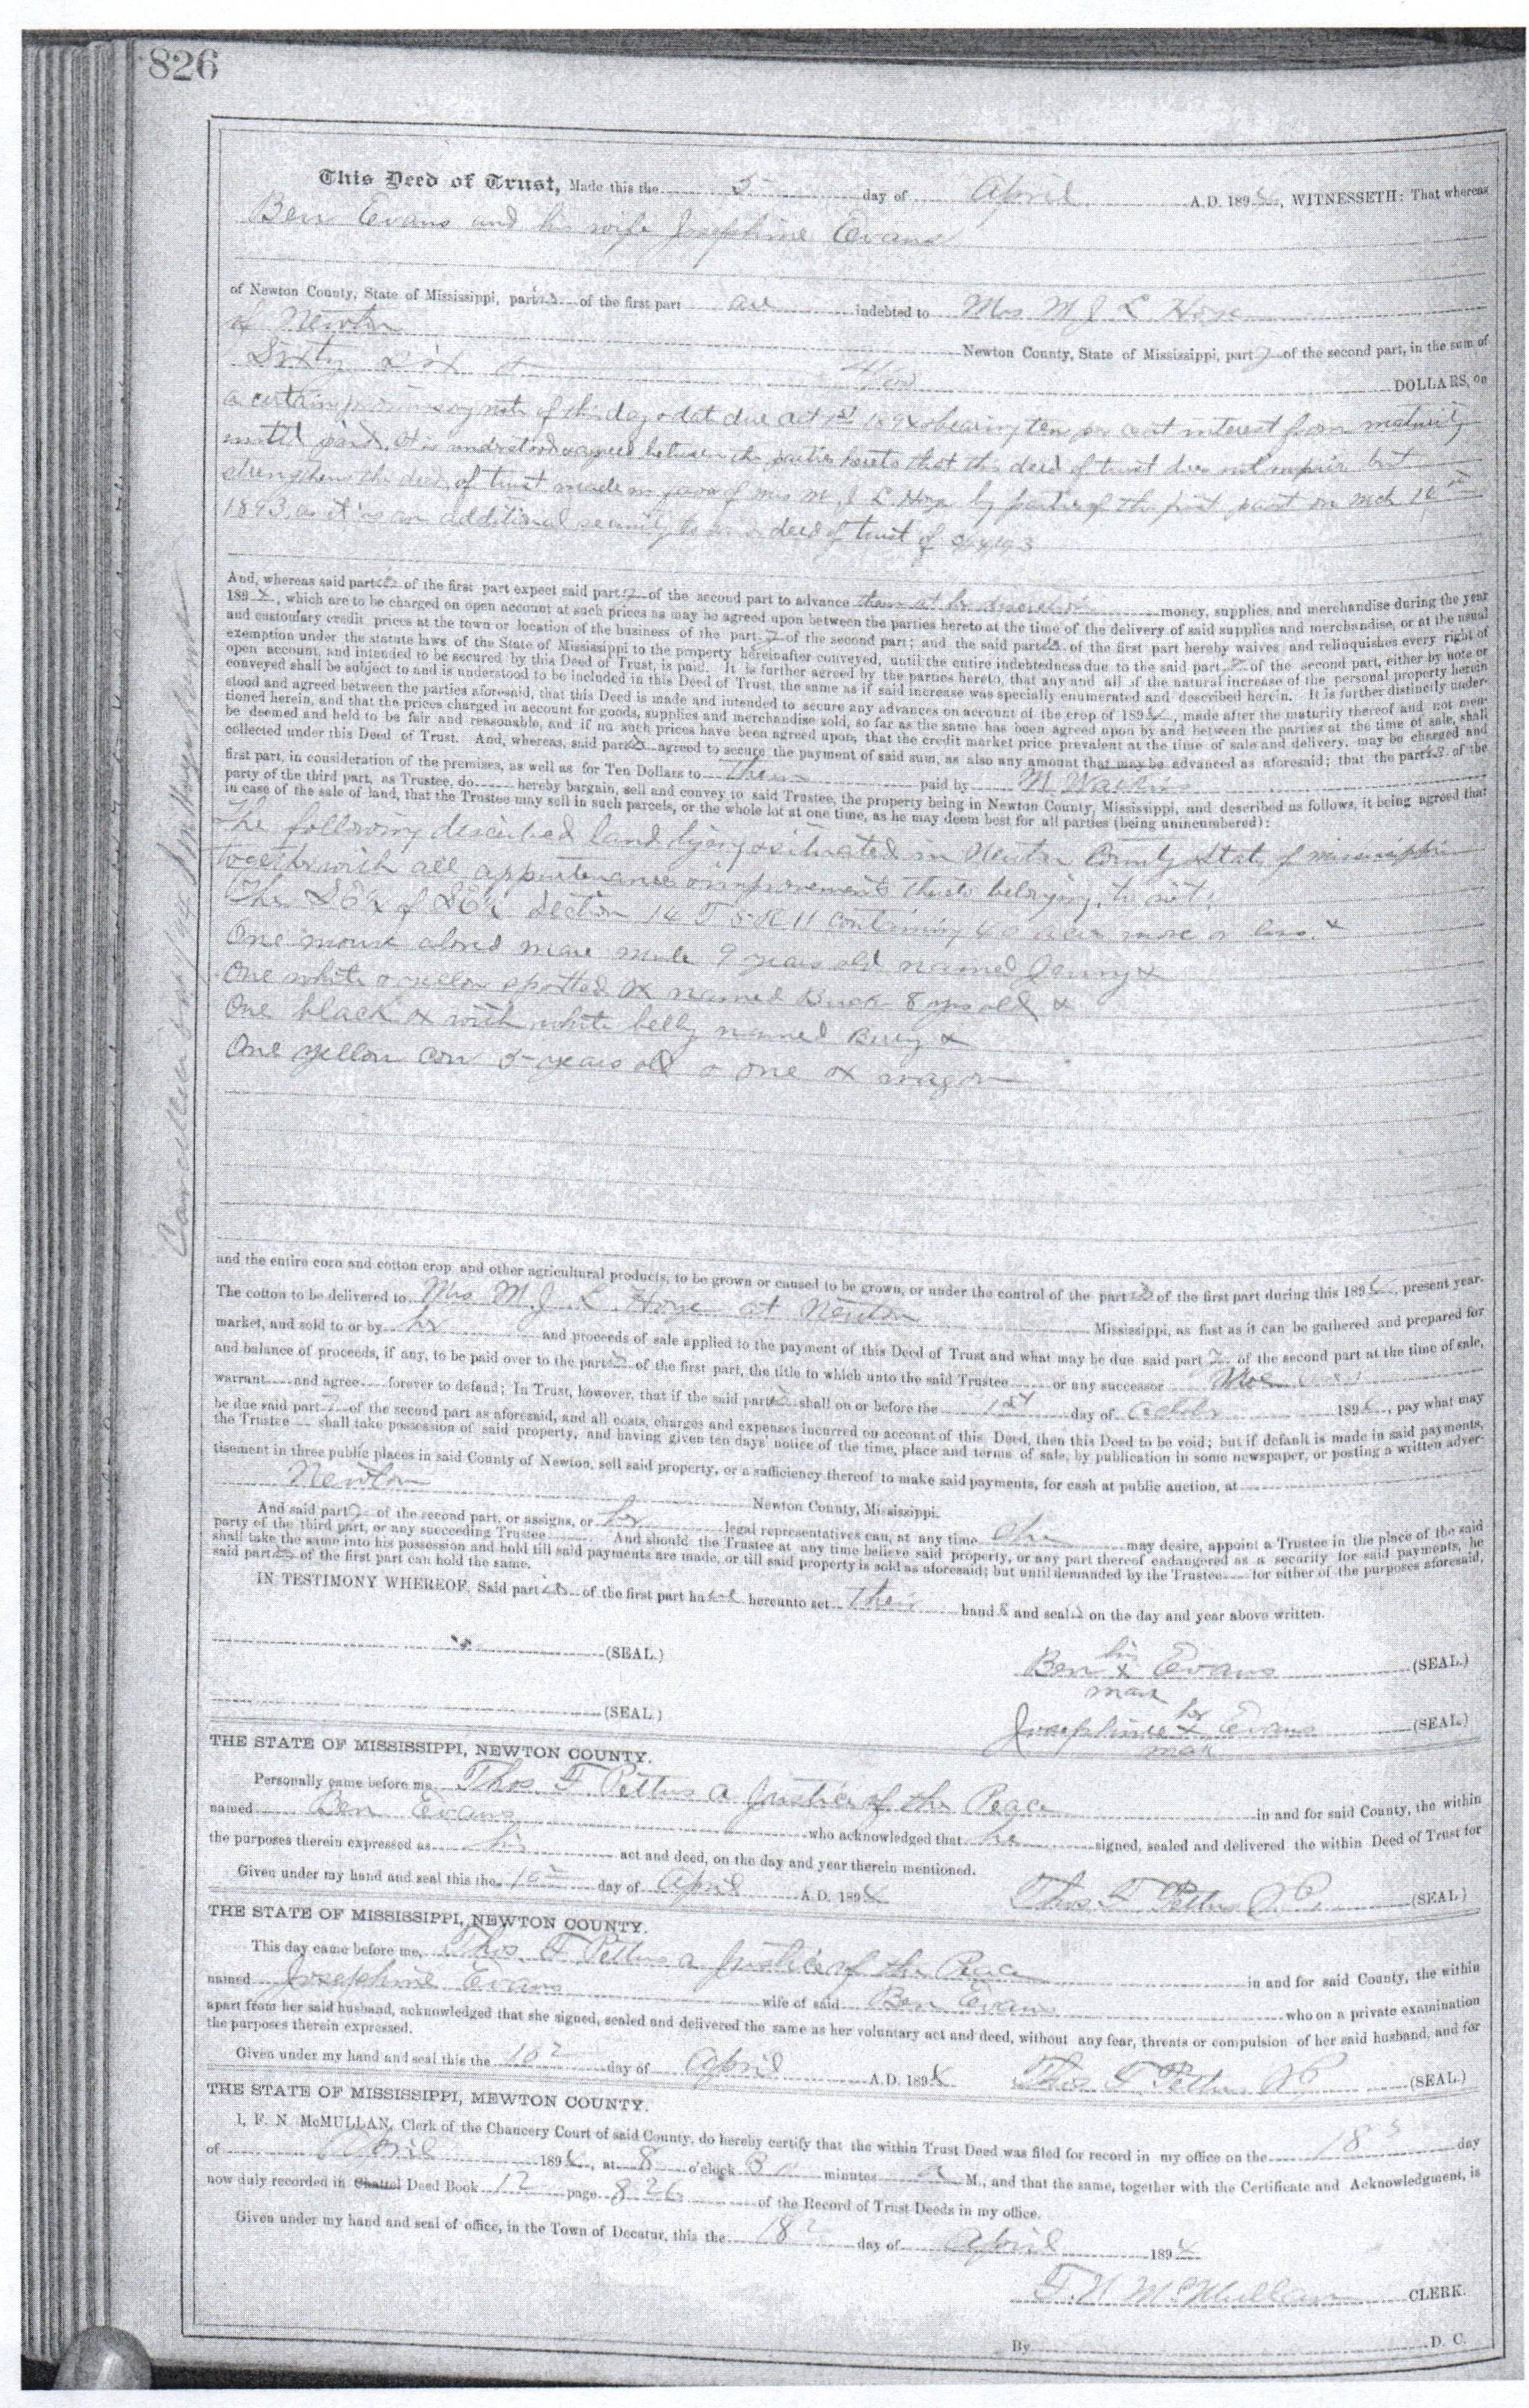 826
This Deed of Trust, Made this the 5 day of April A.D. 1894, WITNESSETH: That whereas
Ben Evans and his wife Josephine Evans
of Newton County, State of Mississippi, parties of the first part are indebted to Mrs M J L Hoye
of Newton
Newton County, State of Mississippi, party of the second part, in the sum of
Sixty six & 4/100 DOLLARS, on
a certain promissory note of this day & date due Oct 1st 1894 & bearing ten per cent interest from maturity
until paid. It is understood & agreed between the parties hereto that this deed of trust does not impair but
strengthens the deed of trust made in favor of Mrs M. J. L. Hoye by parties of the first part on Mch
1893, as it is an additional security to deed of trust of
And, whereas said parties of the first part expect said party of the second part to advance them at her discretion money, supplies, and merchandise during the year
1894, which are to be charged on open account at such prices as may be agreed upon between the parties hereto at the time of the delivery of said supplies and merchandise, or at the usual
and customary credit prices at the town or location of the business of the party of the second part; and the said parties of the first part hereby waives and relinquishes every right of
exemption under the statute laws of the State of Mississippi to the property hereinafter conveyed, until the entire indebtedness due to the said party of the second part, either by note or
open account, and intended to be secured by this Deed of Trust, is paid. It is further agreed by the parties hereto, that any and all of the natural increase of the personal property herein
conveyed shall be subject to and is understood to be included in this Deed of Trust, the same as if said increase was specially enumerated and described herein. It is further distinctly under-
stood and agreed between the parties aforesaid, that this Deed is made and intended to secure any advances on account of the crop of 1894, made after the maturity thereof and not men-
tioned herein, and that the prices charged in account for goods, supplies and merchandise sold, so far as the same has been agreed upon by and between the parties at the time of sale, shall
be deemed and held to be fair and reasonable, and if no such prices have been agreed upon, that the credit market price prevalent at the time of sale and delivery, may be charged and
collected under this Deed of Trust. And, whereas, said parties agreed to secure the payment of said sum, as also any amount that may be advanced as aforesaid; that the parties of the
first part, in consideration of the premises, as well as for Ten Dollars to them paid by M. Watkins
party of the third part, as Trustee, do hereby bargain, sell and convey to said Trustee, the property being in Newton County, Mississippi, and described as follows, it being agreed that
in case of the sale of land, that the Trustee may sell in such parcels, or the whole lot at one time, as he may deem best for all parties (being unincumbered):
The following described land lying & situated in Newton County State of Mississippi
together with all appurtenances & improvements thereto belonging, to wit:
The SE¼ of SE¼ Section 14 T 5 R 11 containing 40 acres more or less. &
One mouse colored mare mule 9 years old named Jenny &
One white & yellow spotted ox named Buck 8 yrs old &
One black ox with white belly named Berry &
One yellow cow 5 years old & one ox wagon
and the entire corn and cotton crop and other agricultural products, to be grown or caused to be grown, or under the control of the parties of the first part during this 1894, present year.
The cotton to be delivered to Mrs M. J. L. Hoye at Newton Mississippi, as fast as it can be gathered and prepared for
market, and sold to or by her and proceeds of sale applied to the payment of this Deed of Trust and what may be due said party of the second part at the time of sale,
and balance of proceeds, if any, to be paid over to the parties of the first part, the title to which unto the said Trustee or any successor
warrant and agree forever to defend; In Trust, however, that if the said parties shall on or before the 1st day of October 1894, pay what may
be due said party of the second part as aforesaid, and all costs, charges and expenses incurred on account of this Deed, then this Deed to be void; but if default is made in said payments,
the Trustee shall take possession of said property, and having given ten days' notice of the time, place and terms of sale, by publication in some newspaper, or posting a written adver-
tisement in three public places in said County of Newton, sell said property, or a sufficiency thereof to make said payments, for cash at public auction, at
Newton Newton County, Mississippi.
And said party of the second part, or assigns, or her legal representatives can, at any time she may desire, appoint a Trustee in the place of the said
party of the third part, or any succeeding Trustee. And should the Trustee at any time believe said property, or any part thereof endangered as a security for said payments, he
shall take the same into his possession and hold till said payments are made, or till said property is sold as aforesaid; but until demanded by the Trustee for either of the purposes aforesaid,
said parties of the first part can hold the same.
IN TESTIMONY WHEREOF, Said parties of the first part have hereunto set their hands and seals on the day and year above written.
(SEAL.) Ben his x mark Evans (SEAL.)
(SEAL.) Josephine her x mark Evans (SEAL.)
THE STATE OF MISSISSIPPI, NEWTON COUNTY.
Personally came before me Thos. F. Pettus a Justice of the Peace in and for said County, the within
named Ben Evans who acknowledged that he signed, sealed and delivered the within Deed of Trust for
the purposes therein expressed as his act and deed, on the day and year therein mentioned.
Given under my hand and seal this the 10 day of April A.D. 1894 Thos. F. Pettus J.P. (SEAL)
THE STATE OF MISSISSIPPI, NEWTON COUNTY.
This day came before me, Thos. F. Pettus a Justice of the Peace in and for said County, the within
named Josephine Evans wife of said Ben Evans who on a private examination
apart from her said husband, acknowledged that she signed, sealed and delivered the same as her voluntary act and deed, without any fear, threats or compulsion of her said husband, and for
the purposes therein expressed.
Given under my hand and seal this the 10 day of April A.D. 1894 Thos F Pettus JP (SEAL.)
THE STATE OF MISSISSIPPI, MEWTON COUNTY.
I, F. N. McMULLAN, Clerk of the Chancery Court of said County, do hereby certify that the within Trust Deed was filed for record in my office on the 18 day
of April 1894, at 8 o'clock 30 minutes a M., and that the same, together with the Certificate and Acknowledgment, is
now duly recorded in Chattel Deed Book 12 page 826 of the Record of Trust Deeds in my office.
Given under my hand and seal of office, in the Town of Decatur, this the 18 day of April 1894
F. N. McMullan CLERK.
By D. C.